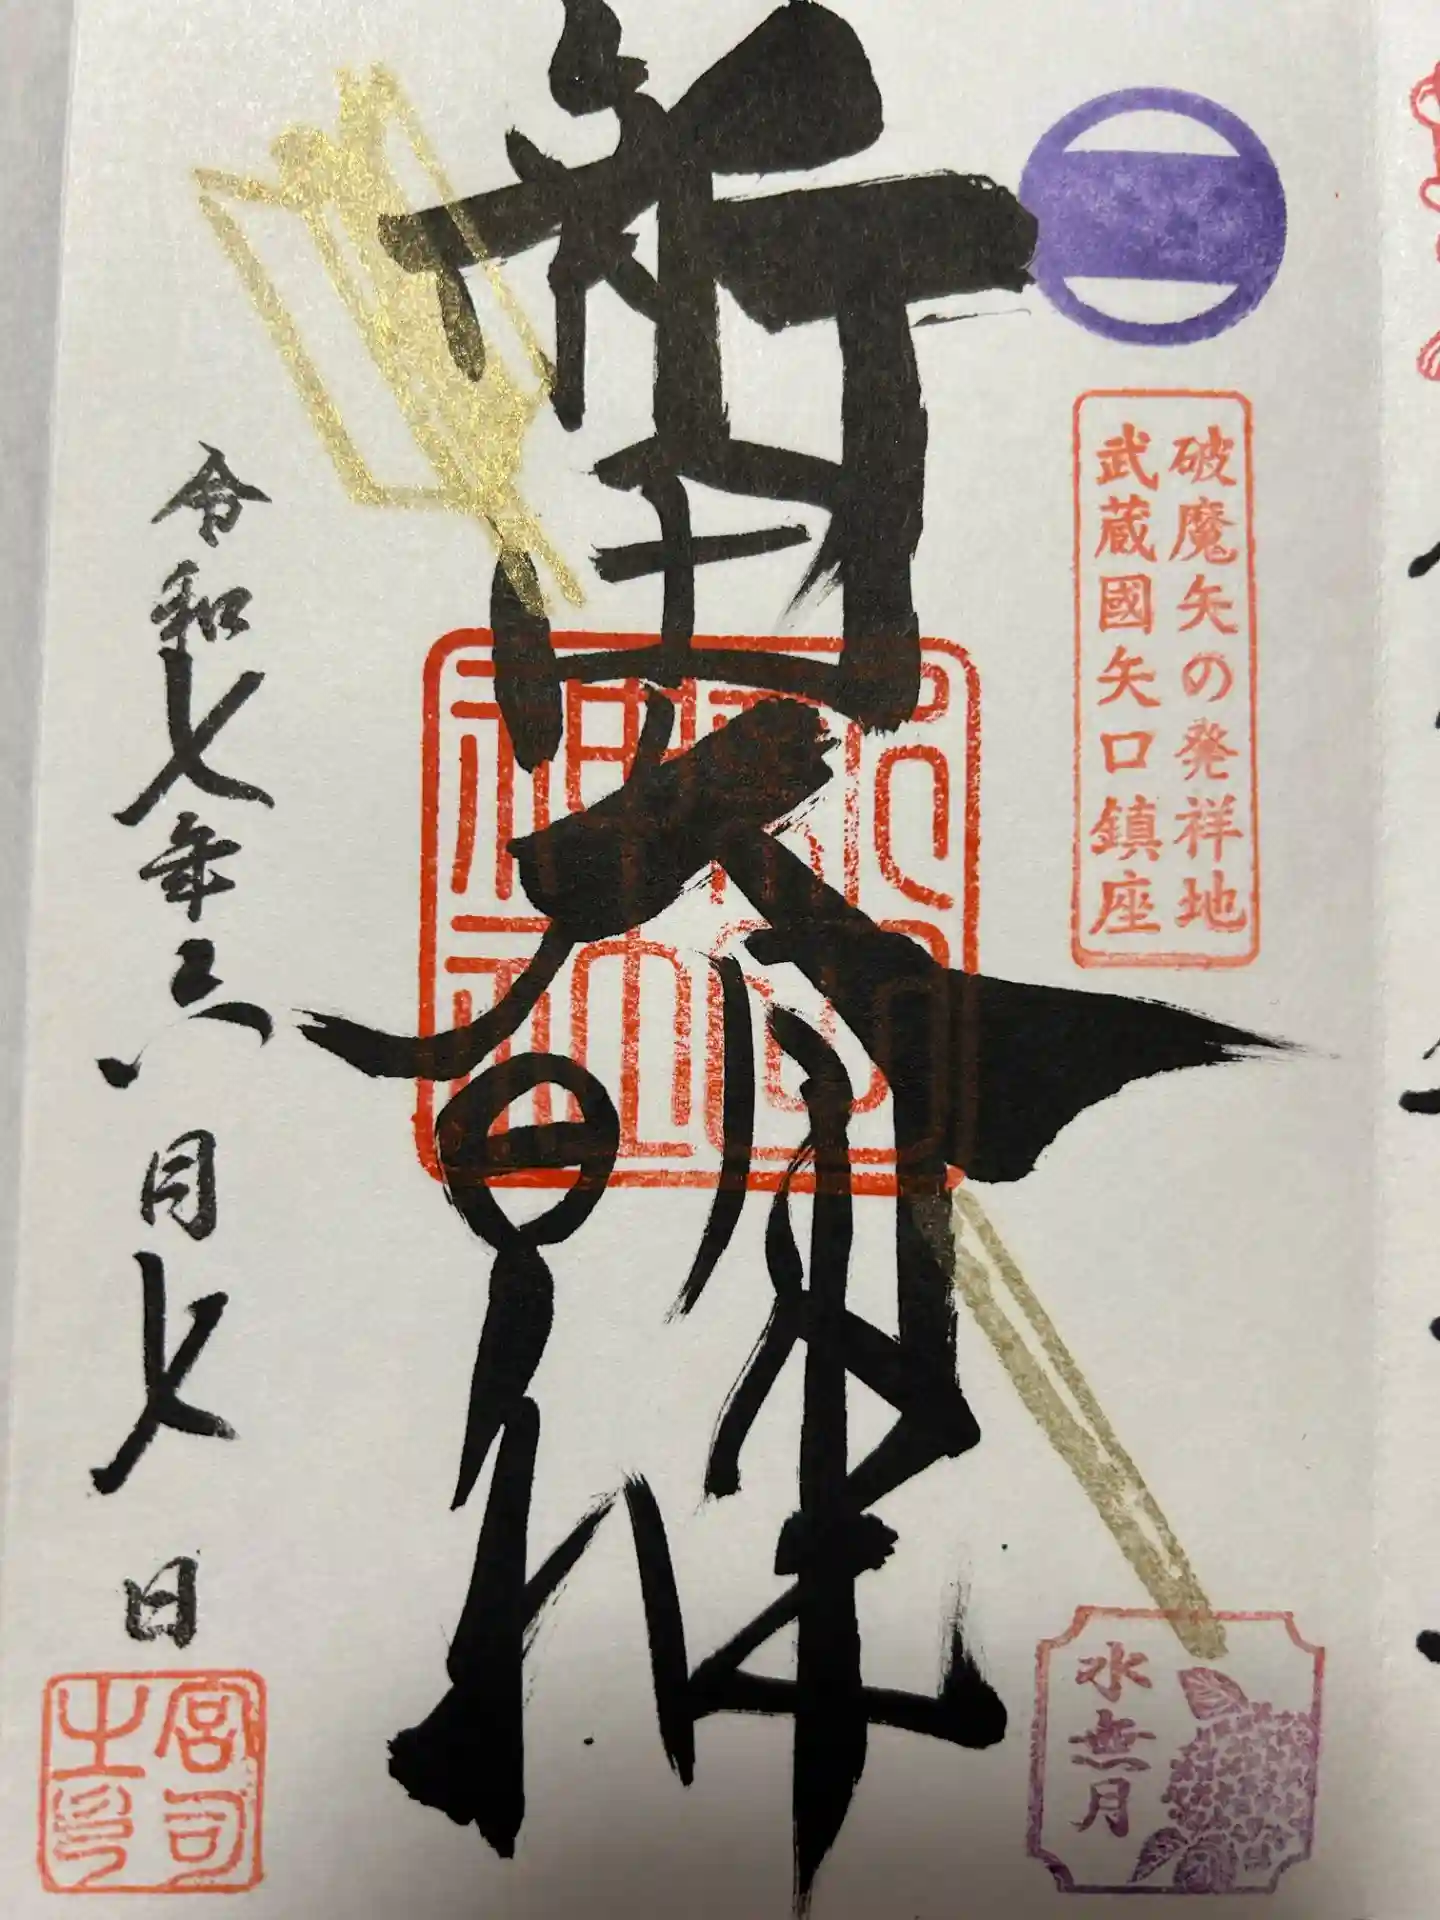 破魔矢の発祥地
武蔵國矢口鎮座
水無月
新田大明神
令和七年六月七日
宮司
之印